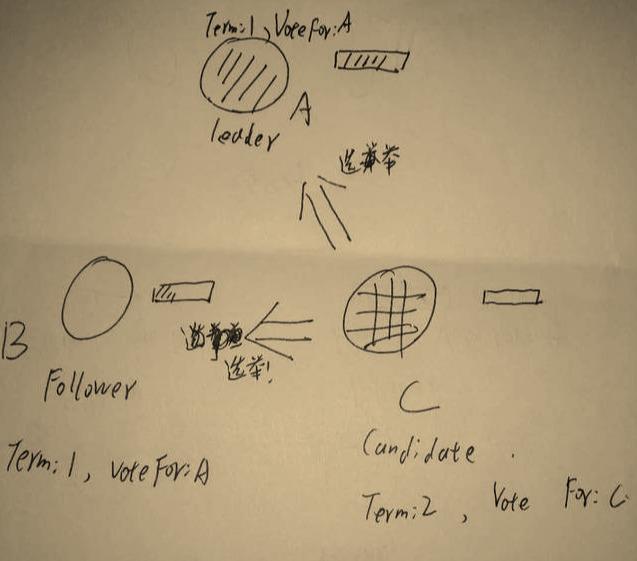 Term:1, VoteFor:A
A
leader
选举
B
Follower
选举!
Term:1, VoteFor:A
C
Candidate.
Term:2, Vote For:C.